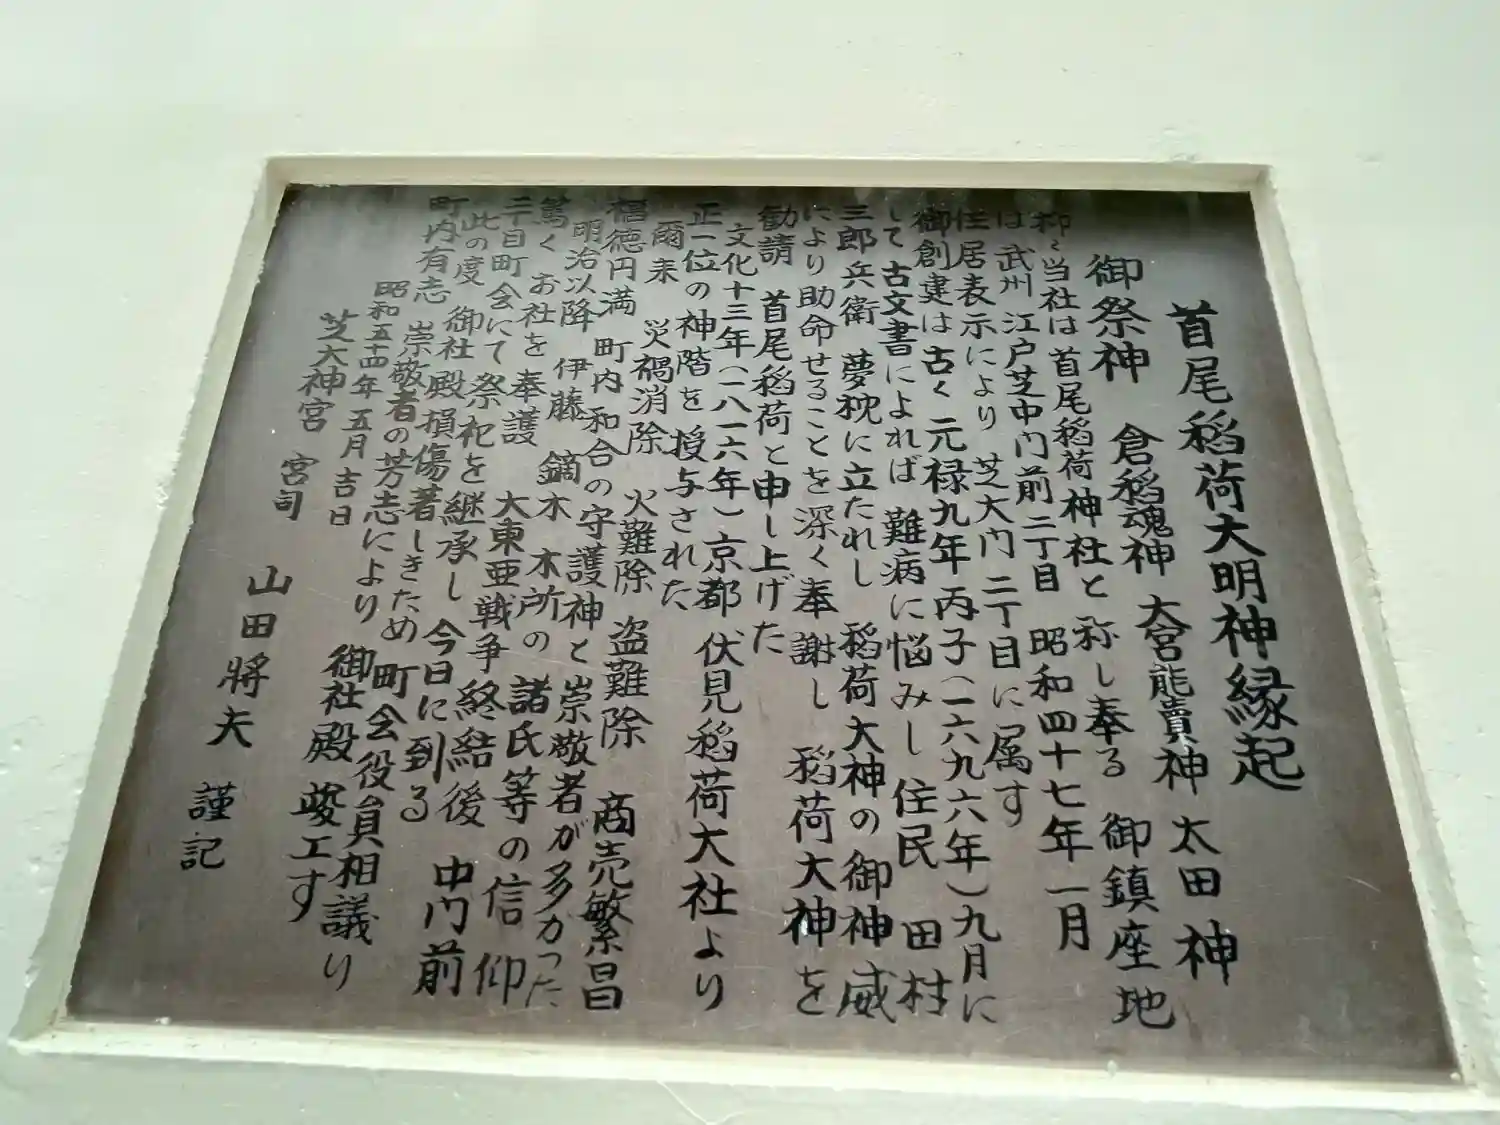 首尾稲荷大明神縁起
御祭神 倉稲魂神 大宮能賣神 太田神
抑〻当社は首尾稲荷神社と称し奉る 御鎮座地
は武州江戸芝中門前二丁目 昭和四十七年一月
住居表示により 芝大門二丁目に属す
御創建は古く元禄九年丙子(一六九六年)九月に
して古文書によれば 難病に悩みし 住民 田村
三郎兵衛 夢枕に立たれし 稲荷大神の御神威
により助命せることを深く奉謝し 稲荷大神を
勧請 首尾稲荷と申し上げた
文化十三年(一八一六年)京都 伏見稲荷大社より
正一位の神階を授与された
爾来 災禍消除 火難除 盗難除 商売繁昌
福徳円満 町内和合の守護神と崇敬者が多かった
明治以降 伊藤 鏑木 本所の 諸氏等の信仰
篤くお社を奉護 大東亜戦争終結後 中門前
二丁目町会にて祭祀を継承し今日に到る
此の度 御社殿損傷著しきため 町会役員相議り
町内有志 崇敬者の芳志により 御社殿竣工す
昭和五十四年五月吉日
芝大神宮 宮司 山田將夫 謹記